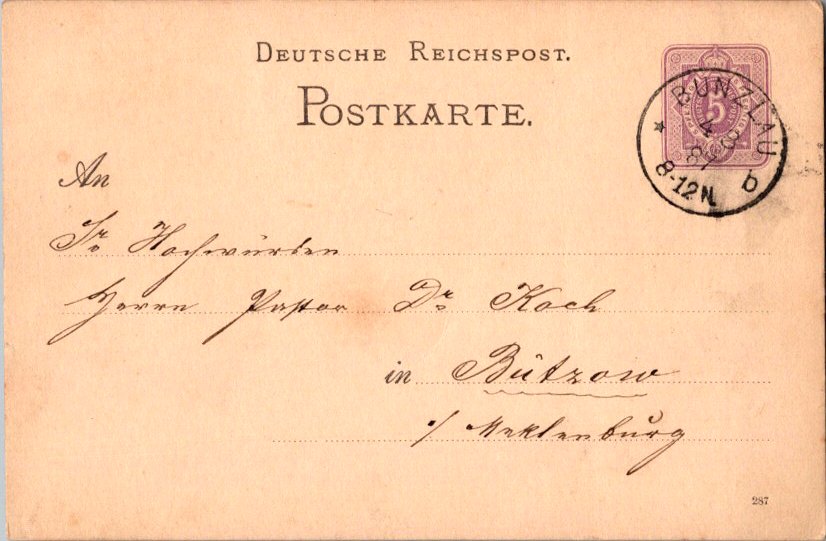 DEUTSCHE REICHSPOST.
POSTKARTE.
5
BUNZLAU
8-12 N.
b
An
Sr. Hochwürden
Herrn Pastor Dr. Koch
in Bützow
i/Meklenburg
287